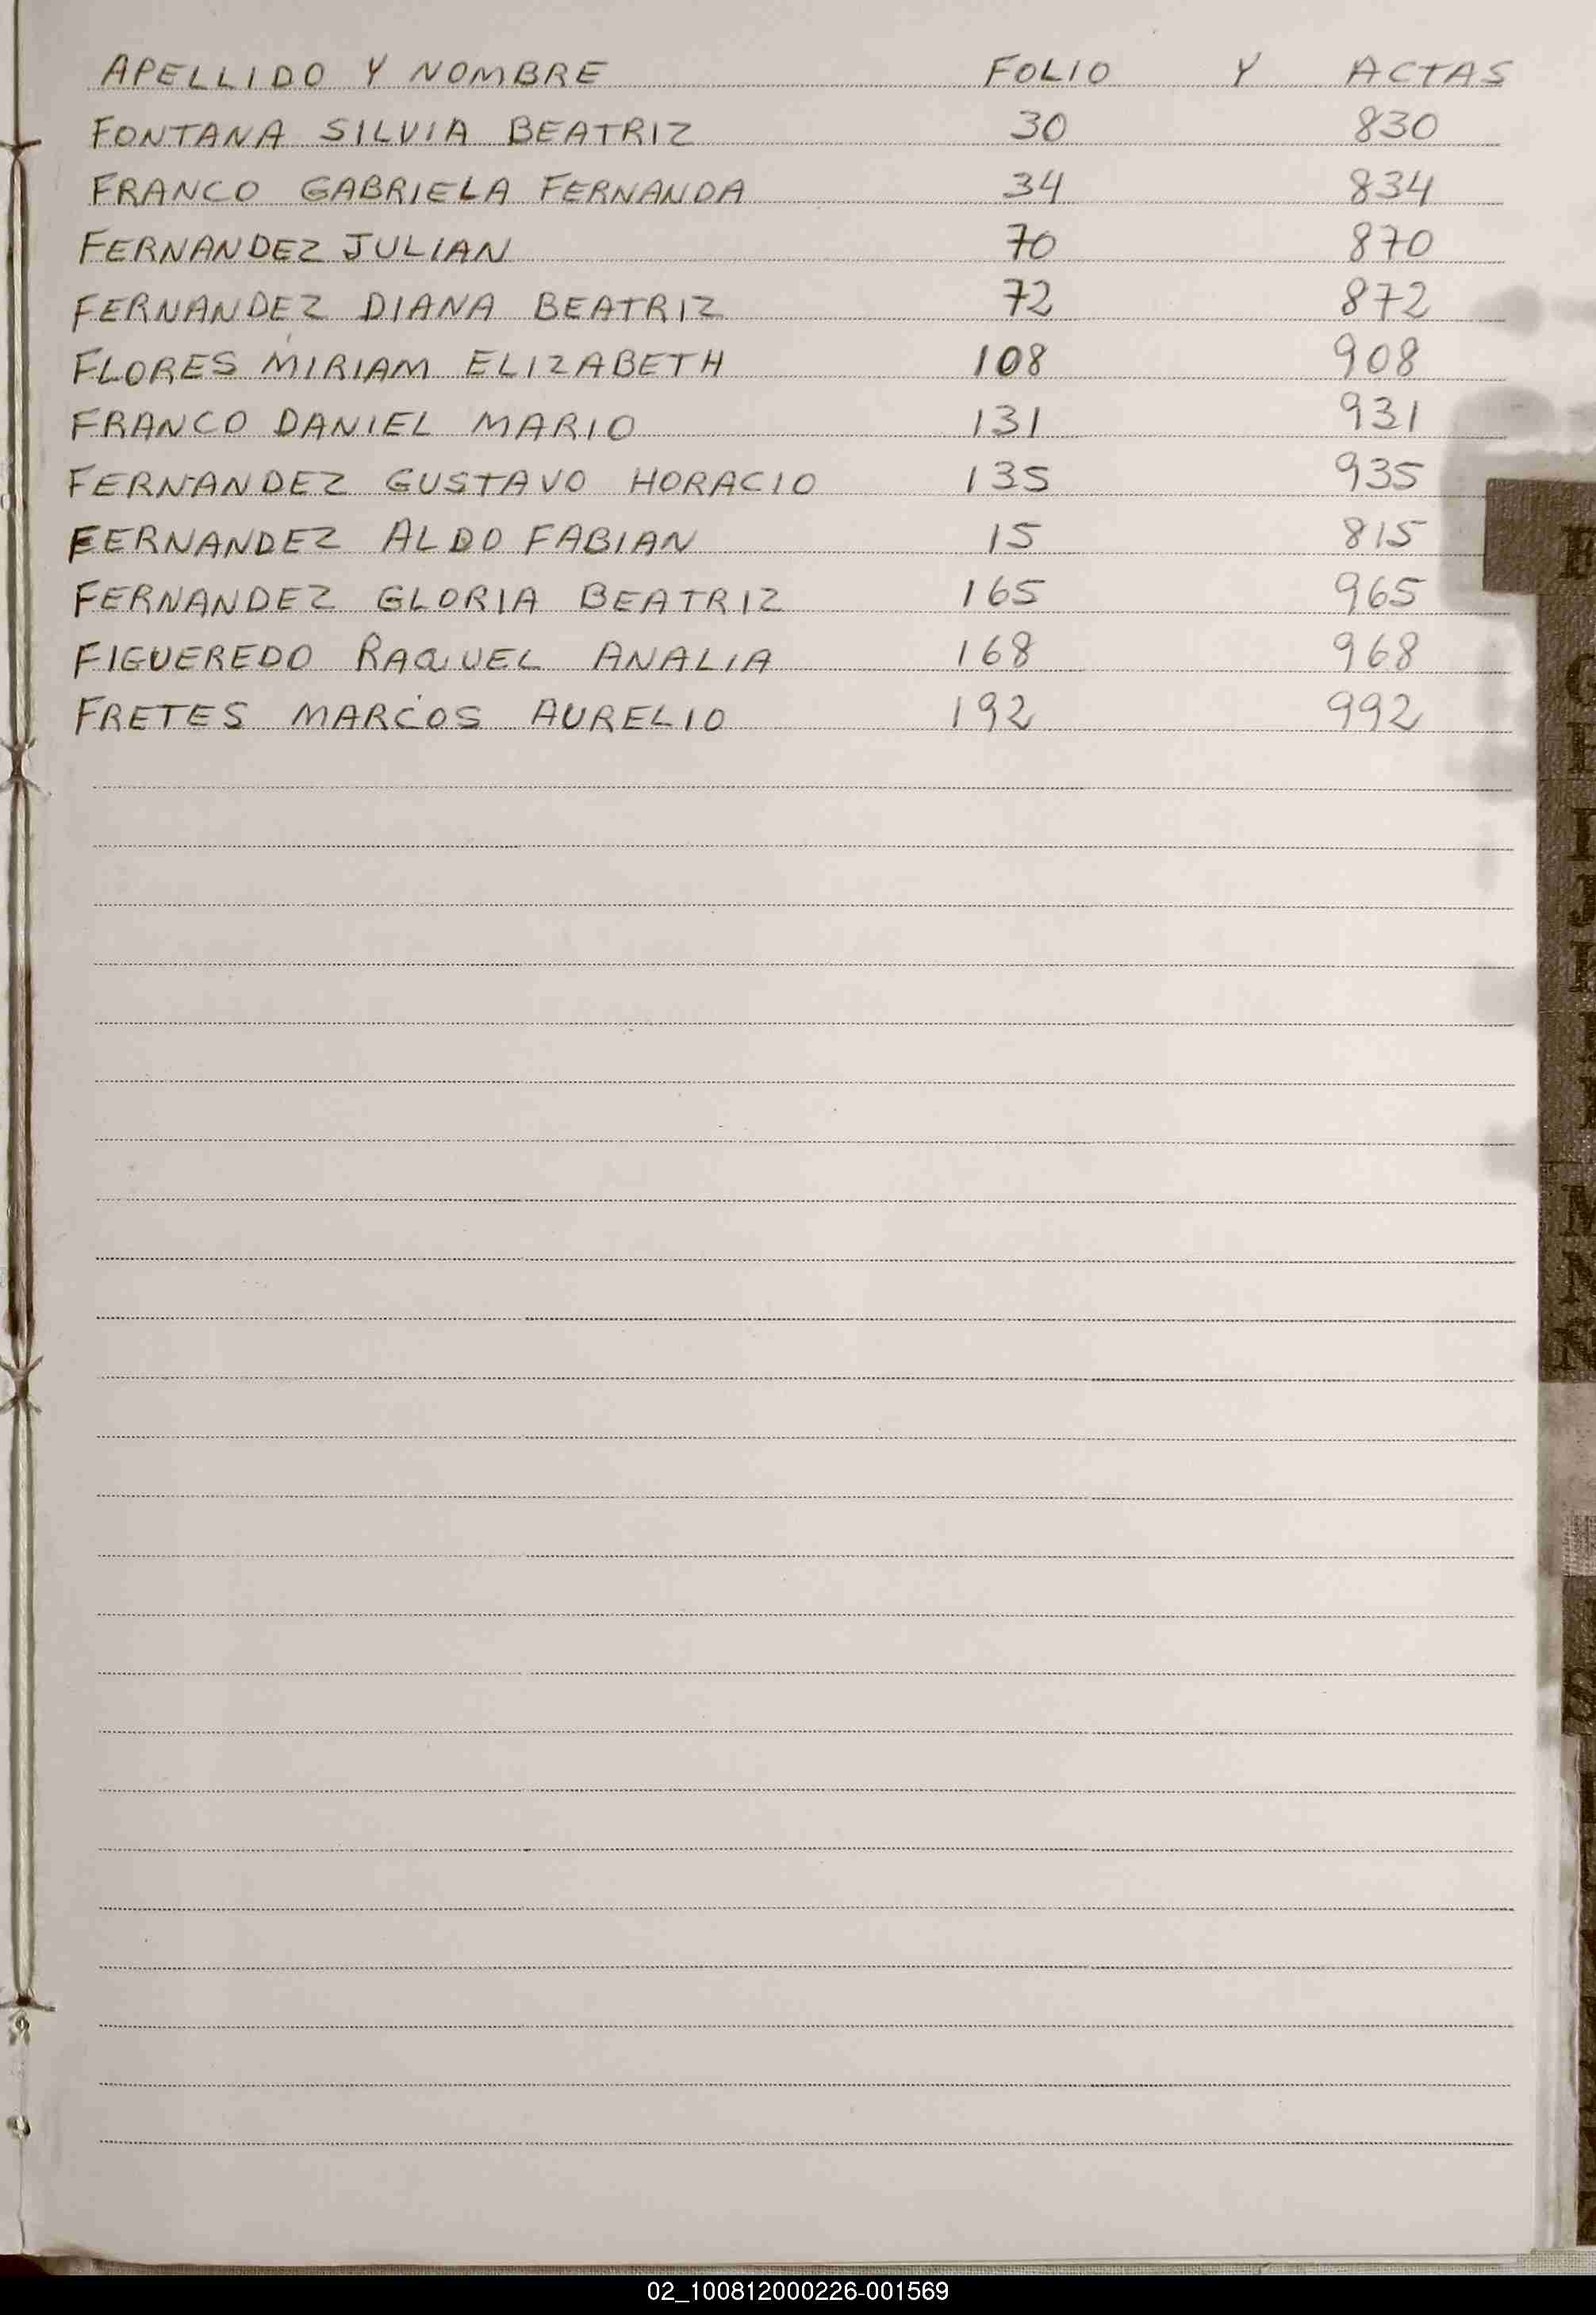 APELLIDO Y NOMBRE FOLIO Y ACTAS
FONTANA SILVIA BEATRIZ 30 830
FRANCO GABRIELA FERNANDA 34 834
FERNANDEZ JULIAN 70 870
FERNANDEZ DIANA BEATRIZ 72 872
FLORES MIRIAM ELIZABETH 108 908
FRANCO DANIEL MARIO 131 931
FERNANDEZ GUSTAVO HORACIO 135 935
FERNANDEZ ALDO FABIAN 15 815
FERNANDEZ GLORIA BEATRIZ 165 965
FIGUEREDO RAQUEL ANALIA 168 968
FRETES MARCOS AURELIO 192 992
02_100812000226-001569